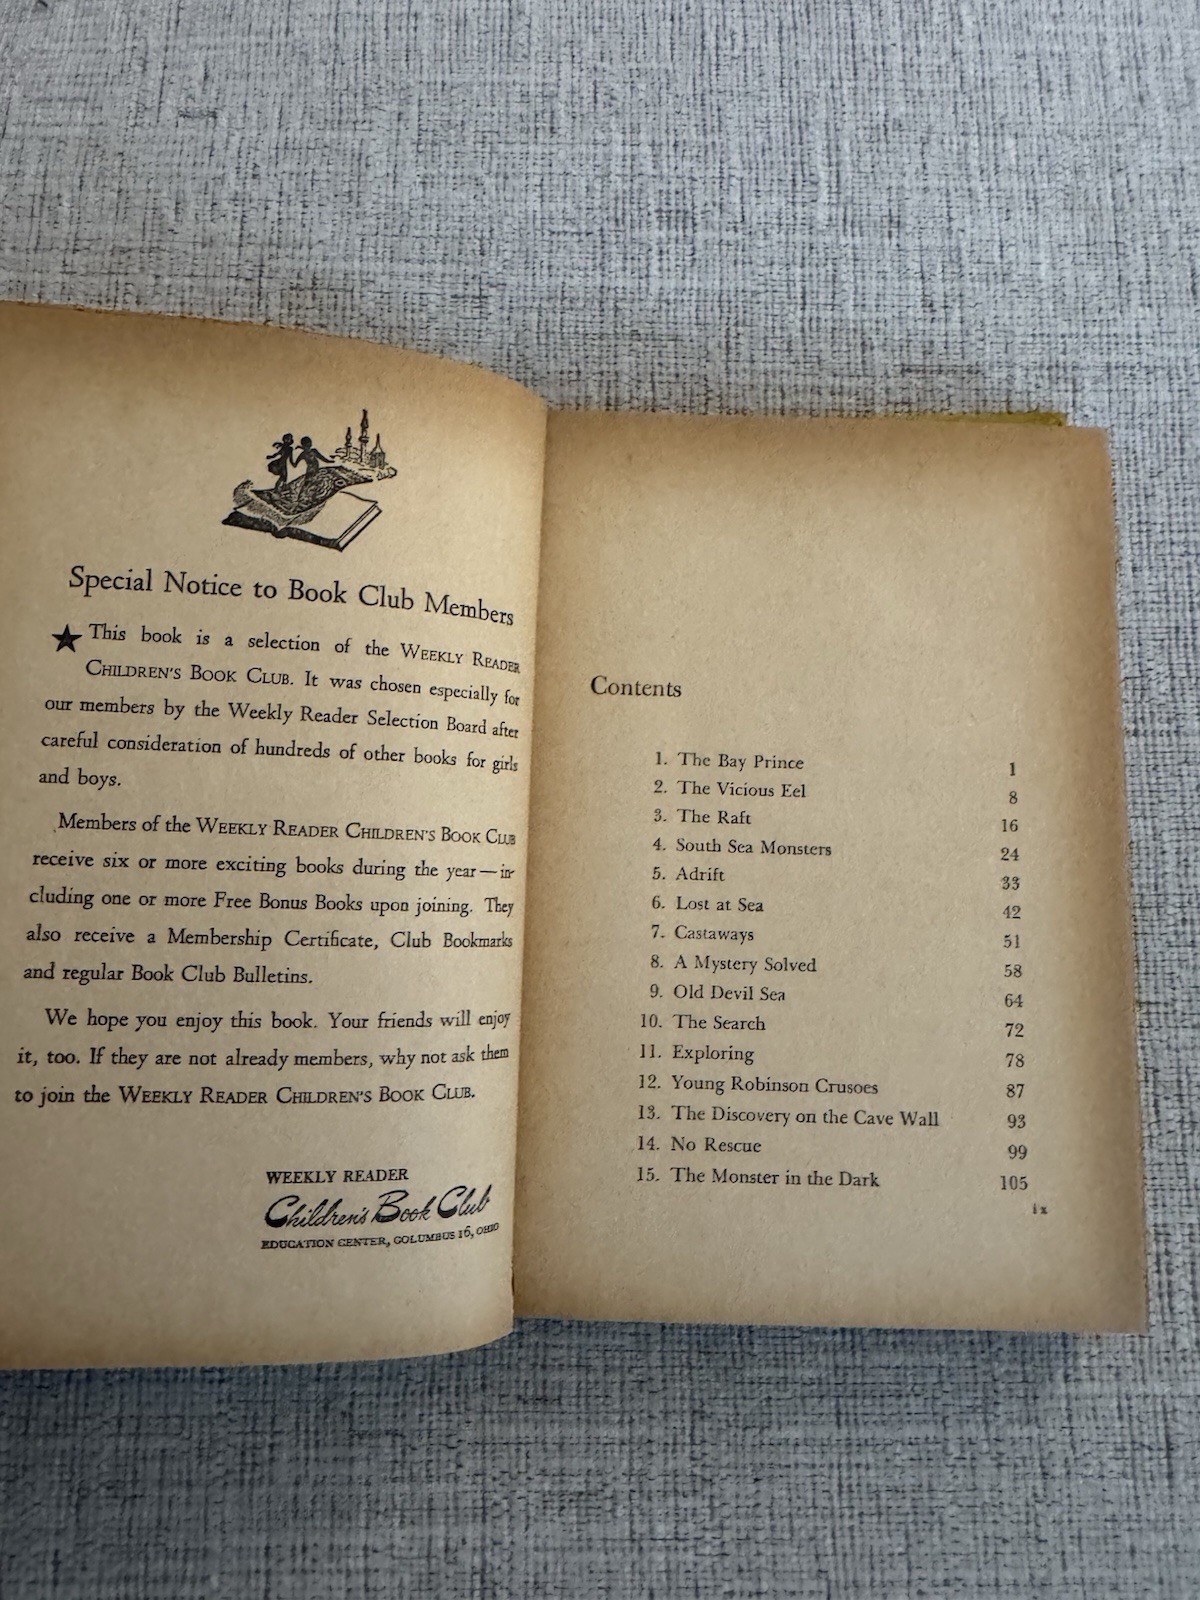 Special Notice to Book Club Members
★ This book is a selection of the WEEKLY READER
CHILDREN'S BOOK CLUB. It was chosen especially for
our members by the Weekly Reader Selection Board after
careful consideration of hundreds of other books for girls
and boys.
Members of the WEEKLY READER CHILDREN'S BOOK CLUB
receive six or more exciting books during the year—in-
cluding one or more Free Bonus Books upon joining. They
also receive a Membership Certificate, Club Bookmarks
and regular Book Club Bulletins.
We hope you enjoy this book. Your friends will enjoy
it, too. If they are not already members, why not ask them
to join the WEEKLY READER CHILDREN'S BOOK CLUB.
WEEKLY READER
Children's Book Club
EDUCATION CENTER, COLUMBUS 16, OHIO
Contents
1. The Bay Prince 1
2. The Vicious Eel 8
3. The Raft 16
4. South Sea Monsters 24
5. Adrift 33
6. Lost at Sea 42
7. Castaways 51
8. A Mystery Solved 58
9. Old Devil Sea 64
10. The Search 72
11. Exploring 78
12. Young Robinson Crusoes 87
13. The Discovery on the Cave Wall 93
14. No Rescue 99
15. The Monster in the Dark 105
ix